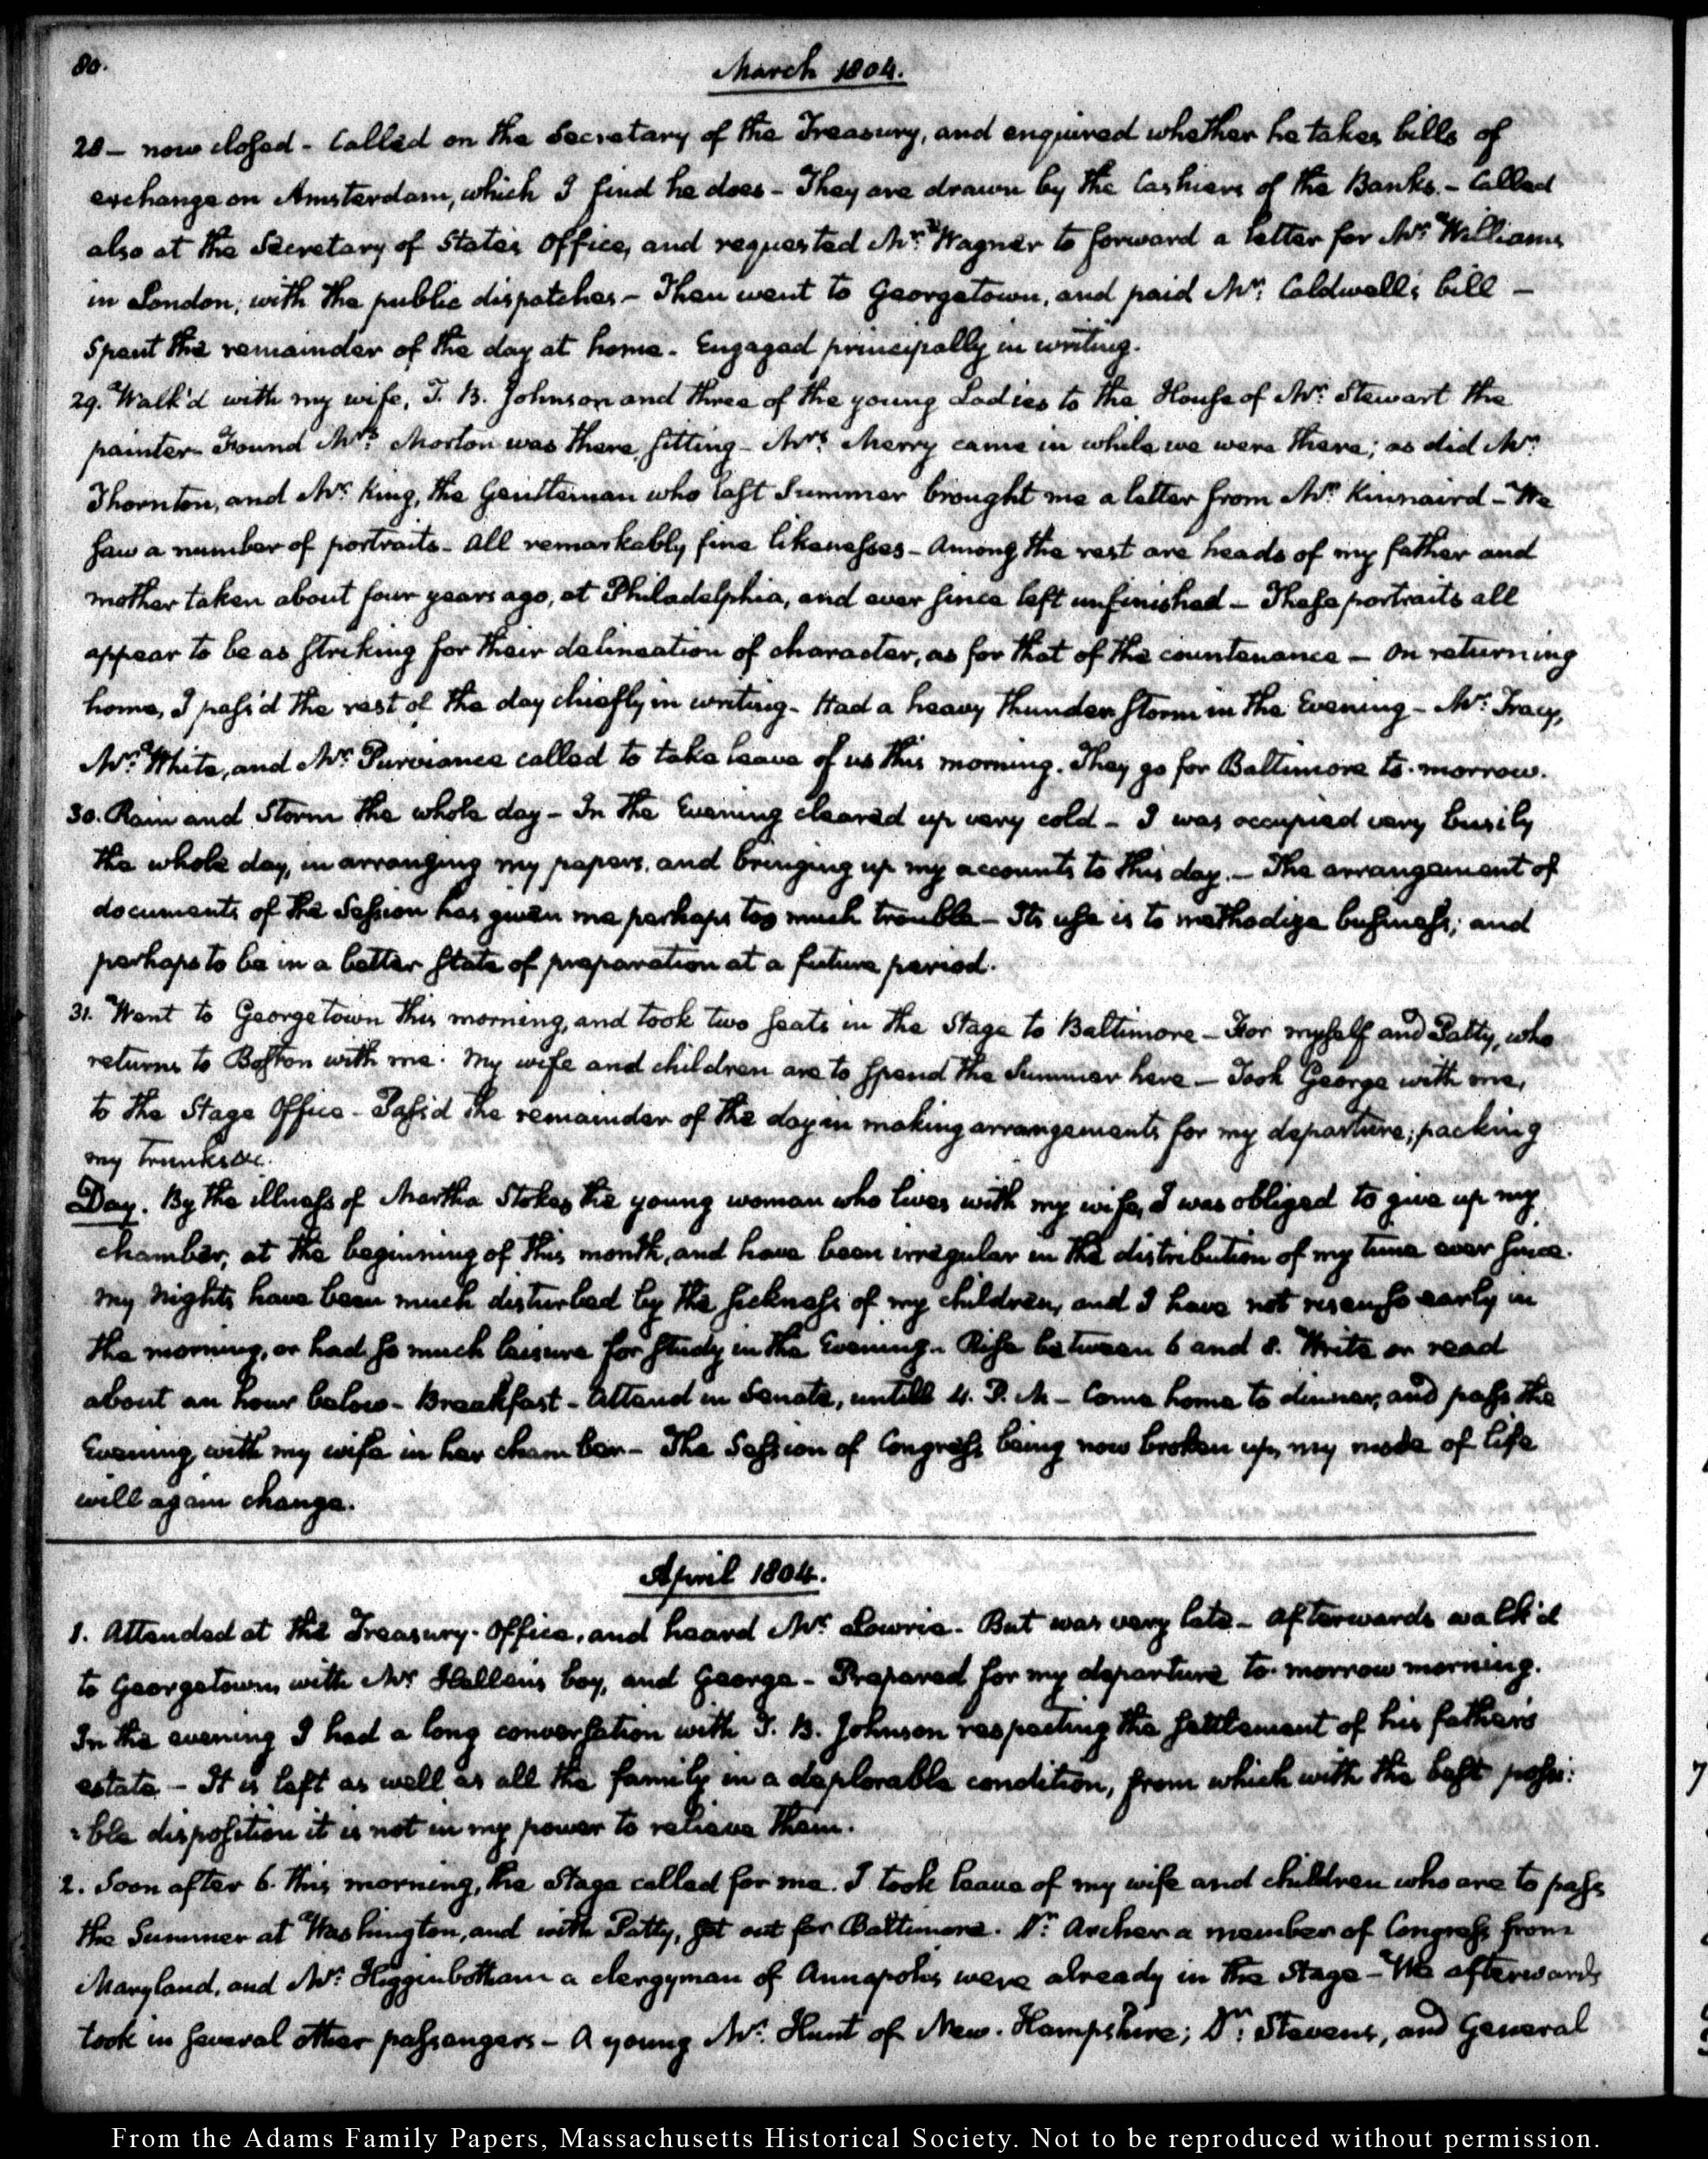 80.
March 1804.
28 — now closed - Called on the Secretary of the Treasury, and enquired whether he takes bills of
exchange on Amsterdam, which I find he does - They are drawn by the Cashiers of the Banks. - Called
also at the Secretary of State's Office, and requested Mr: Wagner to forward a letter for Mr: Williams
in London; with the public dispatches - Then went to Georgetown, and paid Mr: Caldwell's bill -
Spent the remainder of the day at home. Engaged principally in writing.
29. Walk'd with my wife, T. B. Johnson and three of the young Ladies to the House of Mr: Stewart the
painter - Found Mrs: Morton was there, sitting - Mrs: Merry came in while we were there; as did Mr:
Thornton, and Mr: King, the Gentleman who last Summer brought me a letter from Mr: Kinnaird - We
saw a number of portraits - All remarkably fine likenesses - Among the rest are heads of my father and
mother taken about four years ago, at Philadelphia, and ever since left unfinished - These portraits all
appear to be as striking for their delineation of character, as for that of the countenance - On returning
home, I pass'd the rest of the day chiefly in writing - Had a heavy thunder storm in the Evening - Mr: Tracy,
Mr: White, and Mr: Purviance called to take leave of us this morning. They go for Baltimore to-morrow.
30. Rain and Storm the whole day - In the Evening cleared up very cold - I was occupied very busily
the whole day, in arranging my papers, and bringing up my accounts to this day. - The arrangement of
documents of the Session has given me perhaps too much trouble - Its use is to methodize business; and
perhaps to be in a better state of preparation at a future period.
31. Went to Georgetown this morning, and took two seats in the Stage to Baltimore - For myself and Patty, who
returns to Boston with me. My wife and children are to spend the Summer here - Took George with me,
to the Stage Office - Pass'd the remainder of the day in making arrangements for my departure; packing
my trunks &c.
Day. By the illness of Martha Stokes the young woman who lives with my wife, I was obliged to give up my
chamber, at the beginning of this month, and have been irregular in the distribution of my time ever since.
My nights have been much disturbed by the sickness of my children, and I have not risen so early in
the morning, or had so much leisure for study in the Evening. Rise between 6 and 8. Write or read
about an hour below - Breakfast - Attend in Senate, untill 4. P. M - Come home to dinner, and pass the
Evening, with my wife in her chamber - The Session of Congress being now broken up, my mode of life
will again change.
April 1804.
1. Attended at the Treasury-Office, and heard Mr: Lowrie. But was very late - Afterwards walk'd
to Georgetown, with Mr: Hellen's boy, and George - Prepared for my departure to-morrow morning.
In the evening I had a long conversation with T. B. Johnson respecting the settlement of his father's
estate - It is left as well as all the family in a deplorable condition, from which with the best possi:
:ble disposition it is not in my power to relieve them.
2. Soon after 6. this morning, the Stage called for me. I took leave of my wife and children who are to pass
the Summer at Washington, and with Patty, set out for Baltimore. Dr: Archer a member of Congress from
Maryland, and Mr: Higginbotham a clergyman of Annapolis were already in the Stage - We afterwards
took in several other passengers - A young Mr: Hunt of New-Hampshire; Dr: Stevens, and General
From the Adams Family Papers, Massachusetts Historical Society. Not to be reproduced without permission.